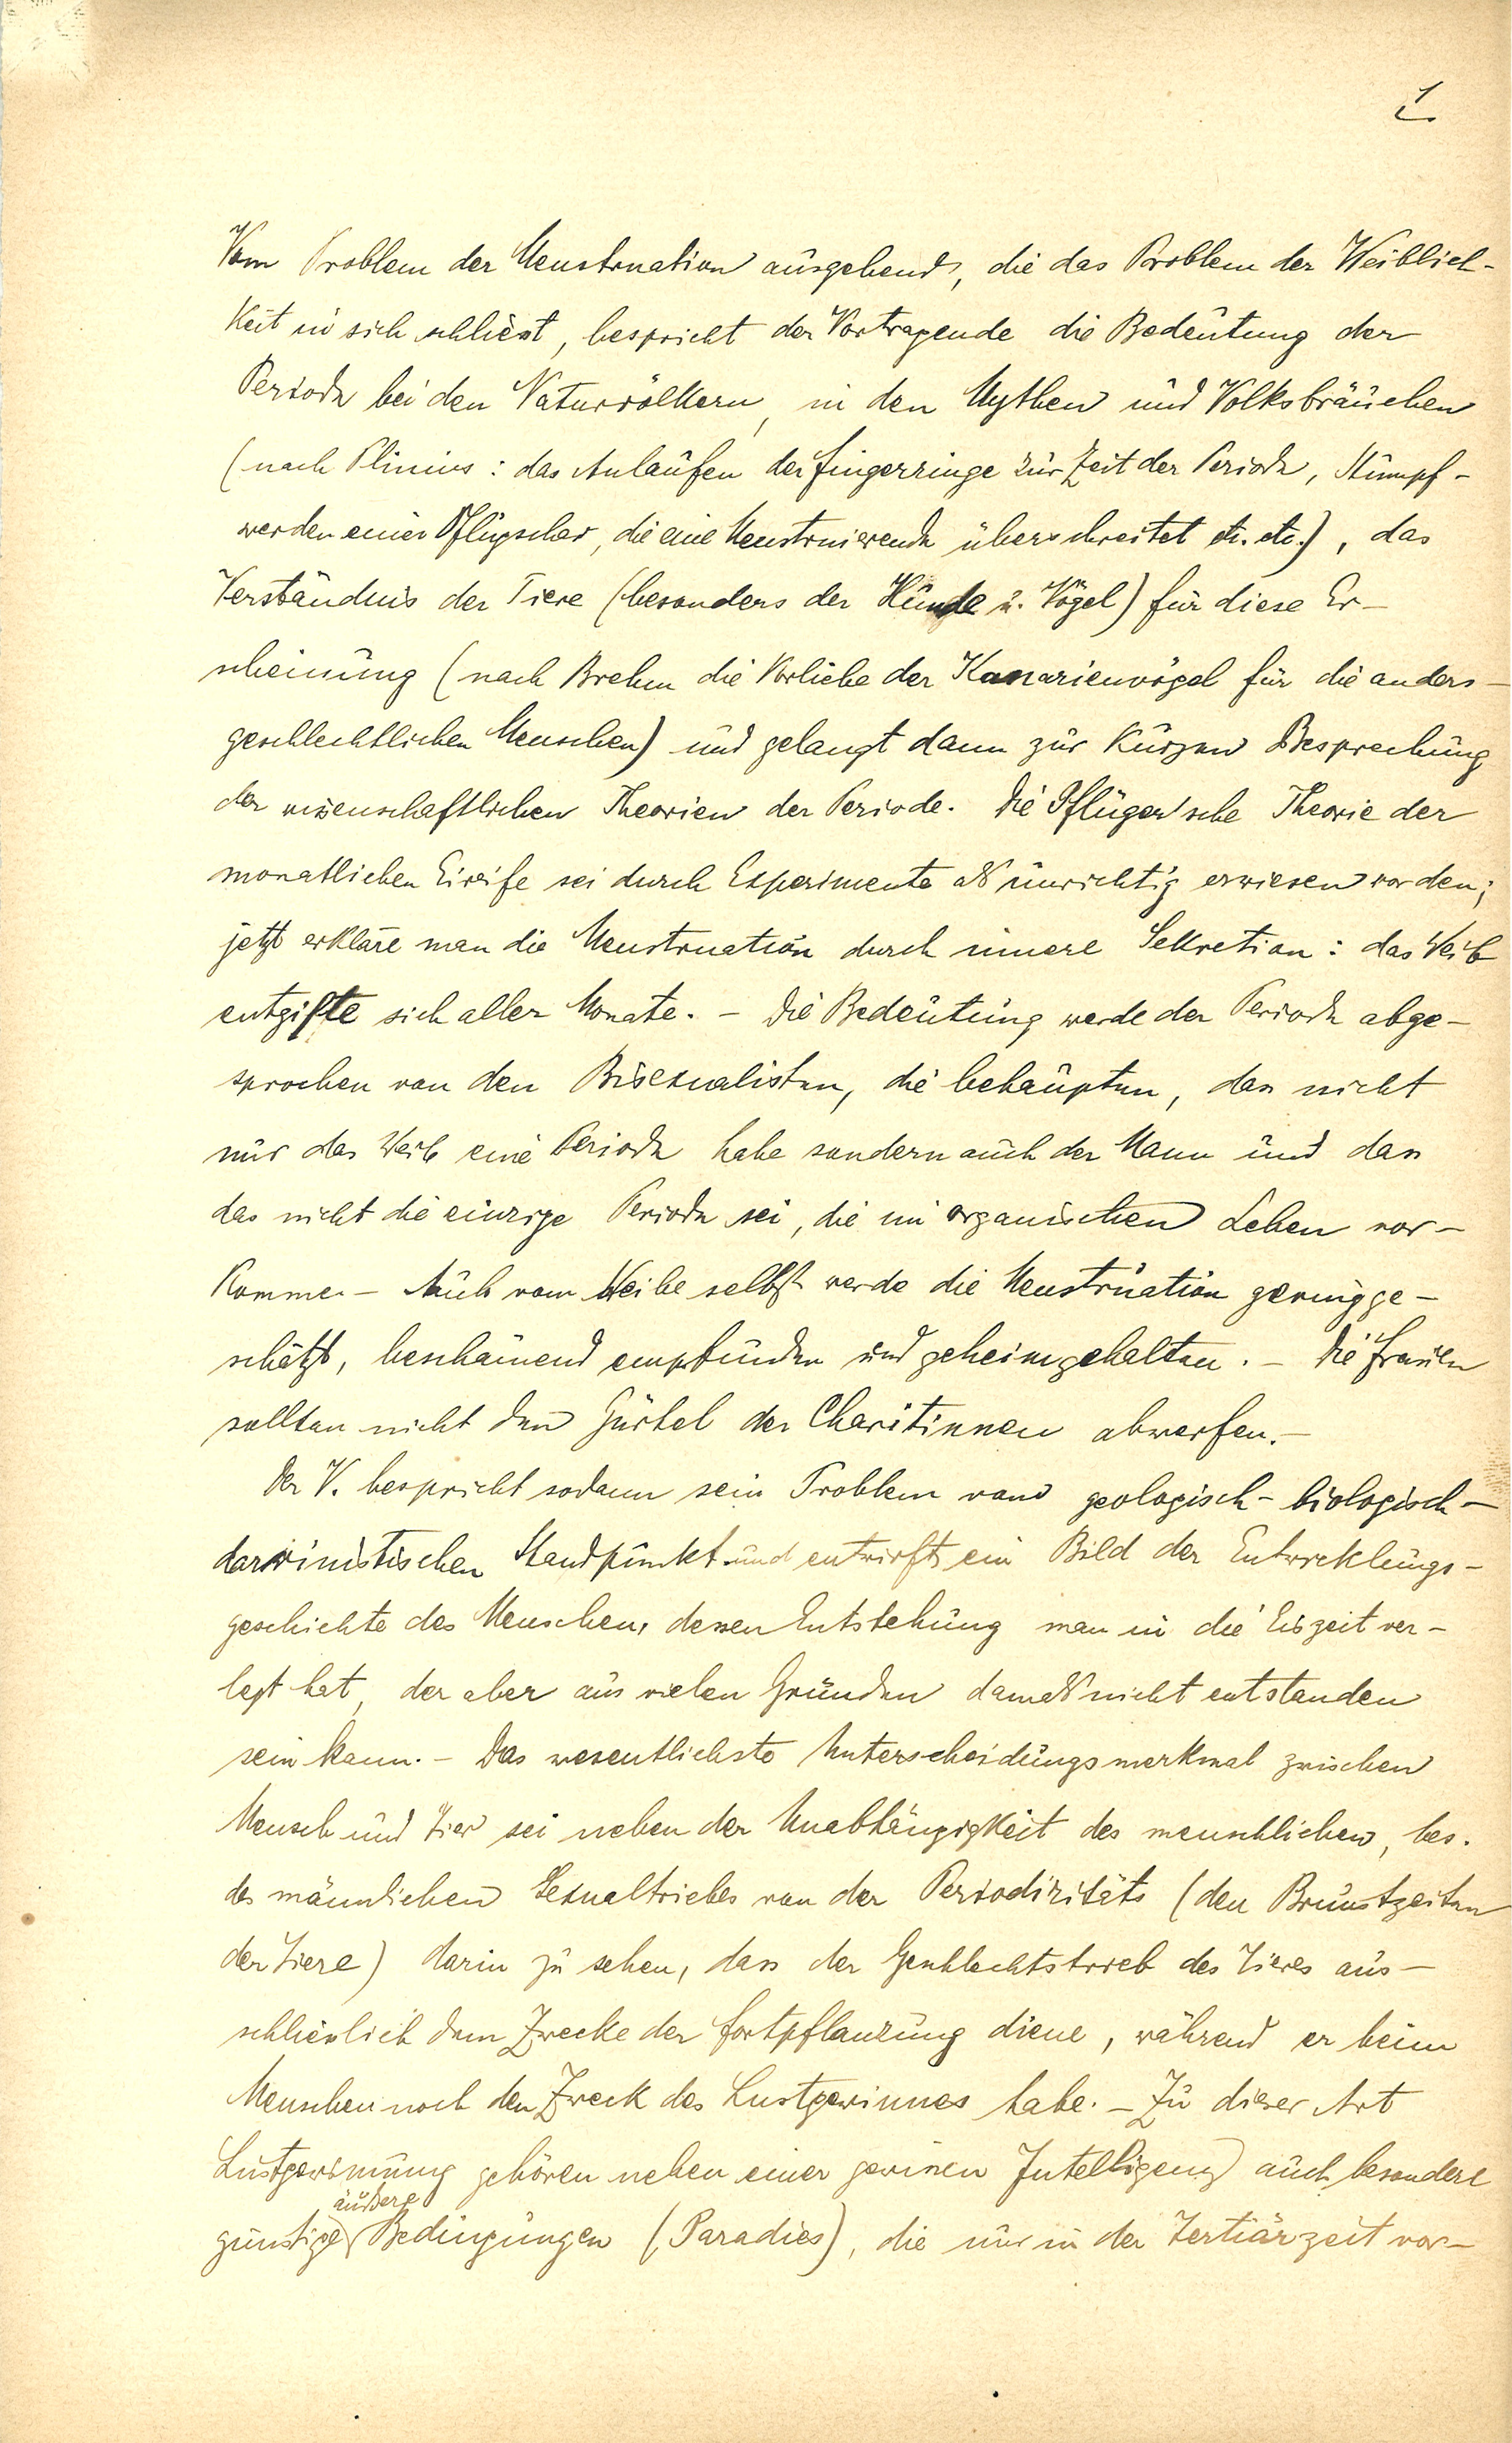 1.
Vom Problem der Menstruation ausgehend, die das Problem der Weiblich-
keit in sich schliesst, bespricht der Vortragende die Bedeutung der
Periode bei den Naturvölkern, in den Mythen und Volksbräuchen
(nach Plinius: das Anlaufen der Fingerringe zur Zeit der Periode, Stumpf-
werden einer Pflugschar, die eine Menstruierende überschreitet etc. etc.), das
Verständnis der Tiere (besonders der Hunde u. Vögel) für diese Er-
scheinung (nach Brehm die Vorliebe der Kanarienvögel für die anders-
geschlechtlichen Menschen) und gelangt dann zur kurzen Besprechung
der wissenschaftlichen Theorien der Periode. Die Pflüger'sche Theorie der
monatlichen Eireife sei durch Experimente als unrichtig erwiesen worden;
jetzt erkläre man die Menstruation durch innere Sekretion: das Weib
entgifte sich aller Monate. - Die Bedeutung werde der Periode abge-
sprochen von den Bisexualisten, die behaupten, dass nicht
nur das Weib eine Periode habe sondern auch der Mann und dass
das nicht die einzige Periode sei, die im organischen Leben vor-
komme. - Auch vom Weibe selbst werde die Menstruation geringge-
schätzt, beschämend empfunden und geheimgehalten. - Die Frauen
sollten nicht den Gürtel der Charitinnen abwerfen. -
Der V. bespricht sodann sein Problem vom geologisch-biologisch-
darwinistischen Standpunkt und entwirft ein Bild der Entwicklungs-
geschichte des Menschen, dessen Entstehung man in die Eiszeit ver-
legt hat, der aber aus vielen Gründen damals nicht entstanden
sein kann. - Das wesentlichste Unterscheidungsmerkmal zwischen
Mensch und Tier sei neben der Unabhängigkeit des menschlichen, bes.
des männlichen Sexualtriebes von der Periodizitäts (den Brunstzeiten
der Tiere) darin zu sehen, dass der Geschlechtstrieb des Tieres aus-
schliesslich dem Zwecke der Fortpflanzung diene, während er beim
Menschen noch den Zweck des Lustgewinnes habe. - Zu dieser Art
Lustgewinnung gehören neben einer gewissen Intelligenz auch besondere
äußere
günstige Bedingungen (Paradies), die nur in der Tertiärzeit vor-